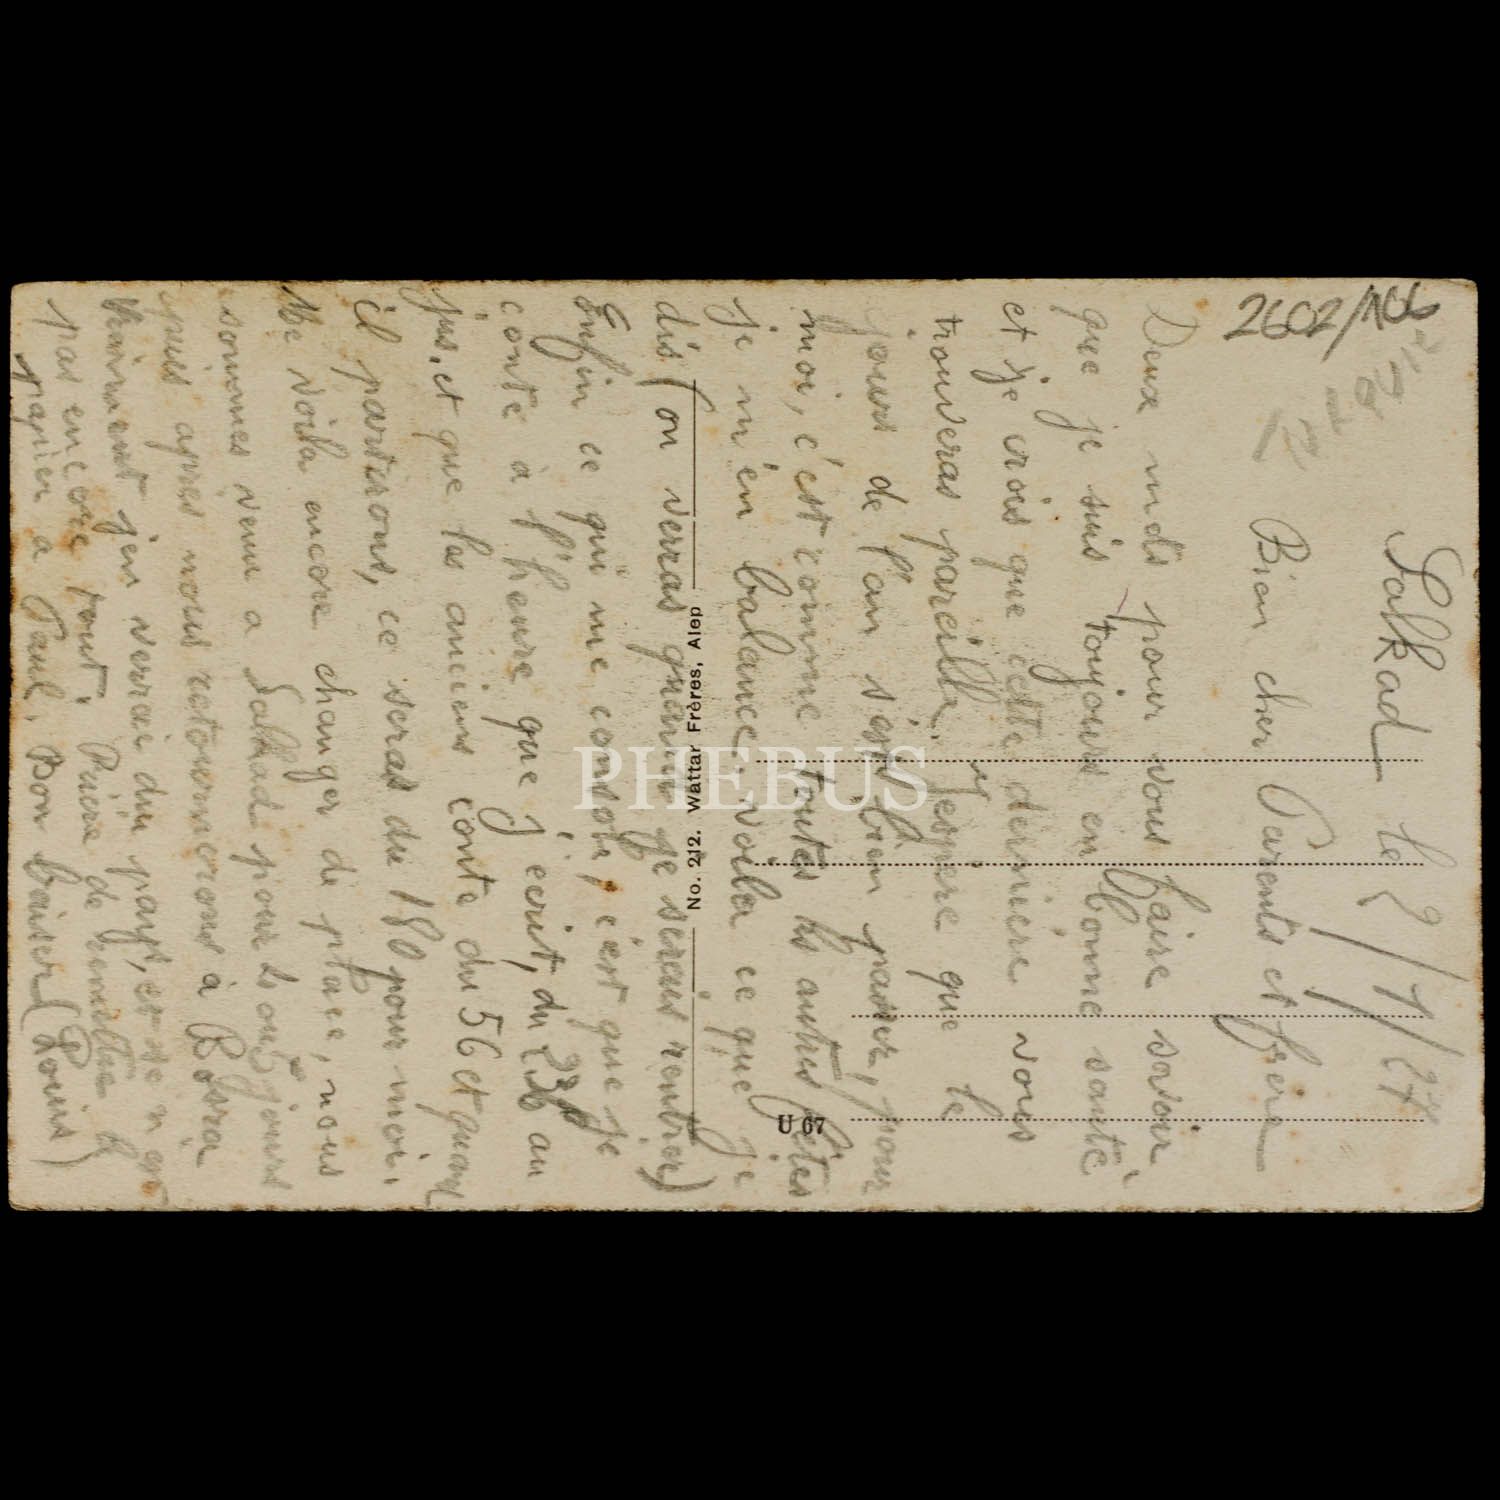 Salkad le 2/1/27
Bien cher Parents et frère
Deux mots pour vous faire savoir
que je suis toujours en bonne santé
et je crois que cette dernière vous
trouveras pareille. j'espère que le
jours de l'an s'est bien passer, pour
moi, c'est comme toutes les autres fêtes
je m'en balance, voila ce que je
dis (on verras quand je serais rentrer)
Enfin ce qui me console, c'est que je
conte à l'heure que j'écrit, du 236 au
jus. et que les anciens conte du 56 et quand
il partirons, ce seras du 180 pour moi.
Me voila encore changer de place, nous
sommes venu a Salkad pour jours
puis apres nous retournerons à Bosra
vraiment j'en verrai du pays, et se n'est
pas encore tout. Prière de remettre le
papier a Paul. Bon baiser (Louis)
2602/106
No. 212. Wattar Frères, Alep
U 67
PHEBUS